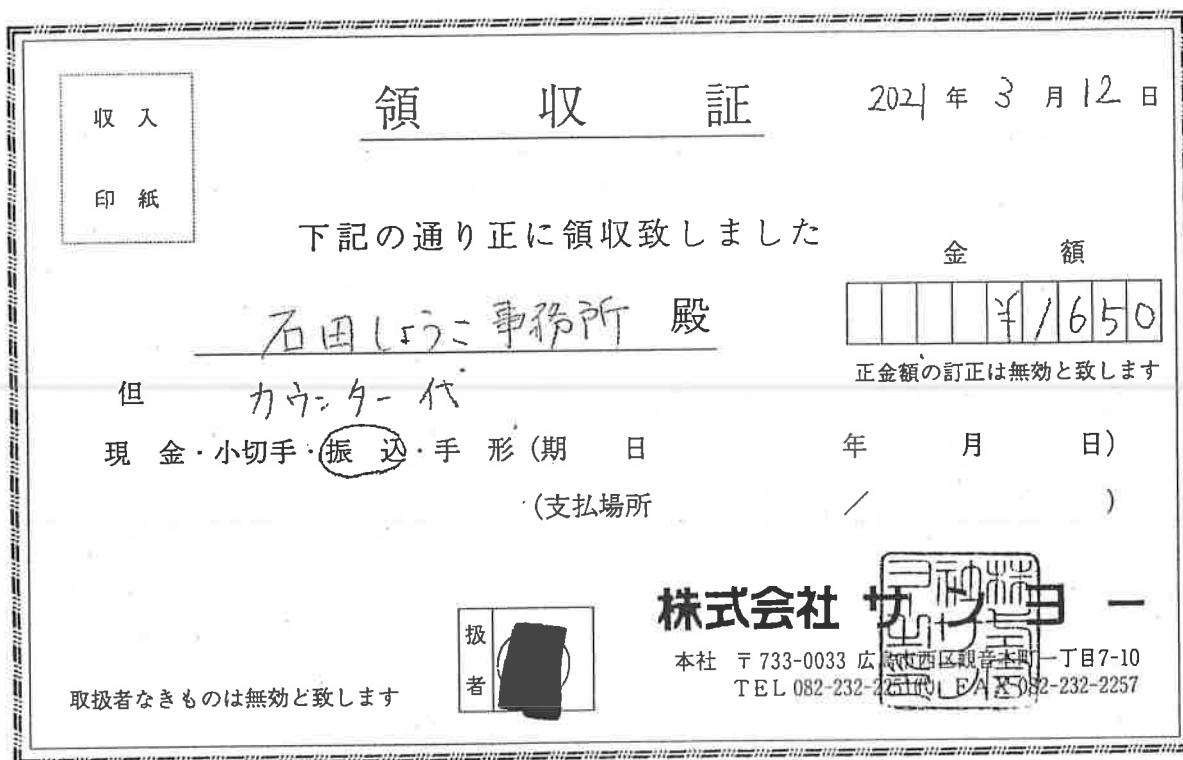 収入
印紙
領収証
2021年3月12日
下記の通り正に領収致しました
金額
石田しょうこ事務所 殿
¥1650
正金額の訂正は無効と致します
但 カウンター代
現金・小切手・振込・手形(期日 年 月 日)
(支払場所 / )
株式会社サンヨー
扱者
本社 〒733-0033 広島市西区観音本町一丁目7-10
TEL 082-232-2251㈹ FAX 082-232-2257
取扱者なきものは無効と致します